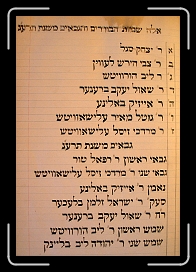 אלה שמות הבוררים והגבאים משנת תרענ
א ר' יצחק סגל
ב ר' צבי הירש לעווין
ג ר' ליב הורוויטש
ד ר' שאול יעקב ברענער
ה ר' אייזיק באלינע
ו ר' מטל מאיר עלישאוויטש
ז ר' מרדכי זיסל עלישאוויטש
גבאים משנת תרענ
גבאי ראשון ר' רפאל טור
גבאי שני ר' מרדכי זיסל עלישאוויטש
נאמן ר' אייזיק באלינע
סעק' ר' ישראל זלמן בלעכער
רח ר' שאול יעקב ברענער
שמש ראשון ר' ליב הורוויטש
שמש שני ר' יהודה ליב בליינק